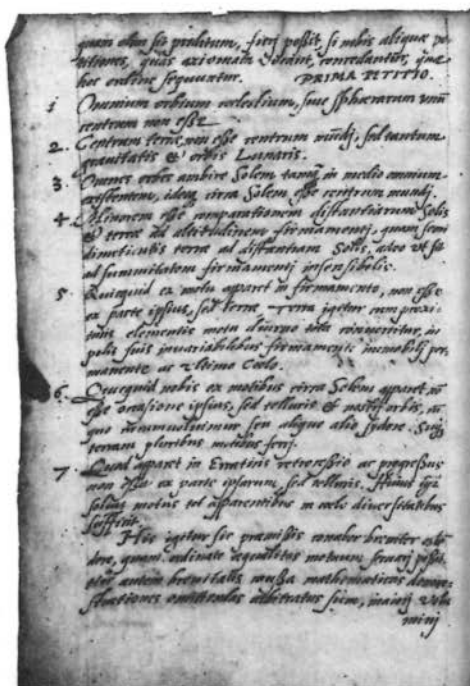 quam olim sit proditum, fierj possit, si nobis aliquæ pe
titiones, quas axiomata vocant, concedantur, quæ
hoc ordine sequuntur. PRIMA PETITIO.
1 Omnium orbium coelestium, siue sphærarum vnũ
centrum non esse
2. Centrum terræ non esse centrum mũdj, sed tantum
grauitatis & orbis Lunaris.
3. Omnes orbes ambire Solem tamq̃ in medio omnium
existentem, ideoq circa Solem esse centrum mundj.
4. Minorem esse comparationem distantiarum Solis
& terræ ad altitudinem firmamentj, quam semi
dimetientis terræ ad distantiam Solis, adeo vt sit
ad summitatem firmamentj insensibilis.
5. Quicquid ex motu apparet in firmamento, non esse
ex parte ipsius, sed terræ Terra igitur cum proxi
mis elementis motu diurno tota conuertitur, in
polis suis inuariabilibus firmamento immobilj per
manente ac vltimo Coelo.
6. Quicquid nobis ex motibus circa Solem apparet nõ
esse occasione ipsius, sed telluris & nostrj orbis, cũ
quo circumuoluimur seu aliquo alio sydere. Sicq
terram pluribus motibus ferrj.
7. Quod apparet in Erraticis retrocessio ac progressus
non esse ex parte ipsarum, sed telluris. Huius igit
solius motus tot apparentibus in coelo diuersitatibus
sufficit.
His igitur sic præmissis conabor breuiter oste
dere, quam ordinate æqualitas motuum seruarj possit.
Hic autem breuitatis causa mathematicas demon
strationes omittendas arbitratus sum, maiorj volu
minj